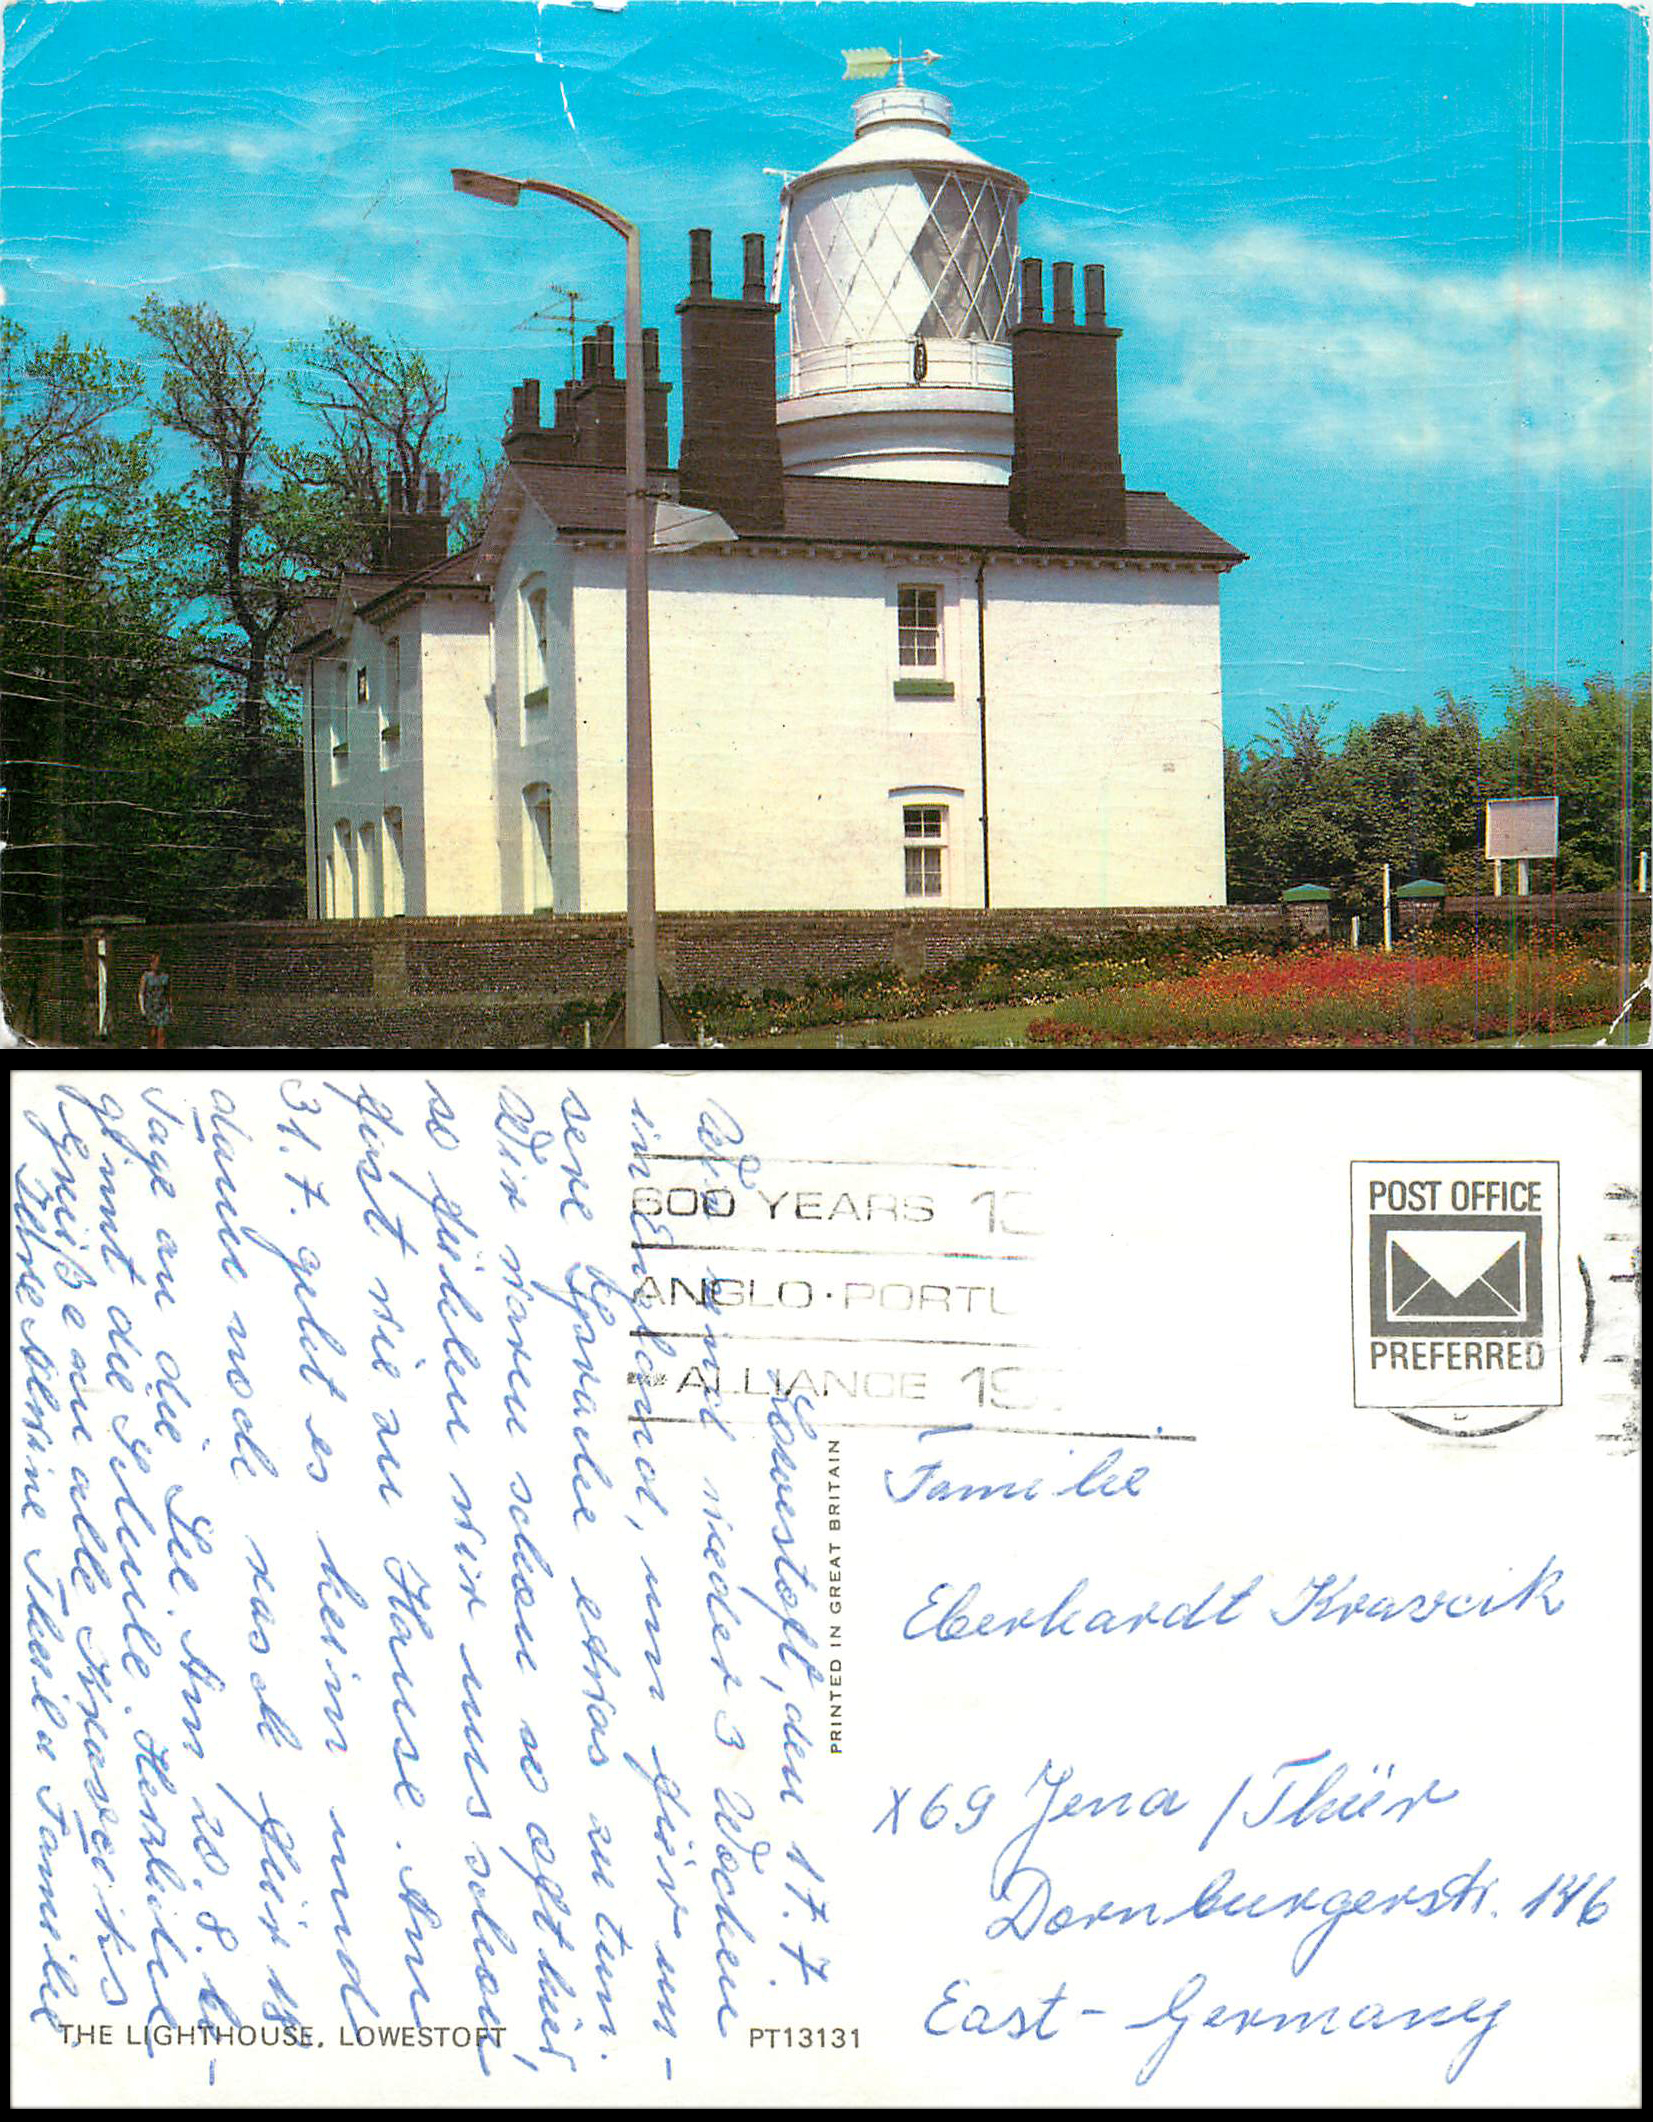 600 YEARS 13
ANGLO·PORTU
ALLIANCE 19
POST OFFICE
PREFERRED
PRINTED IN GREAT BRITAIN
Lowestoft, den 17.7
Wir sind wieder 3 Wochen
in England, um für un-
sere Gesundheit etwas zu tun.
Wir waren schon so oft hier,
so fühlen wir uns schon
fast wie zu Hause. Am
31.7. geht es heim und
dann noch rasch für 14
Tage an die See. Am 20.8. be-
ginnt die Schule. Herzliche
Grüße an alle Krawcziks
Eure Familie
Familie
Eberhardt Krawcik
X69 Jena / Thür
Dornburgerstr. 146
East-Germany
THE LIGHTHOUSE, LOWESTOFT
PT13131